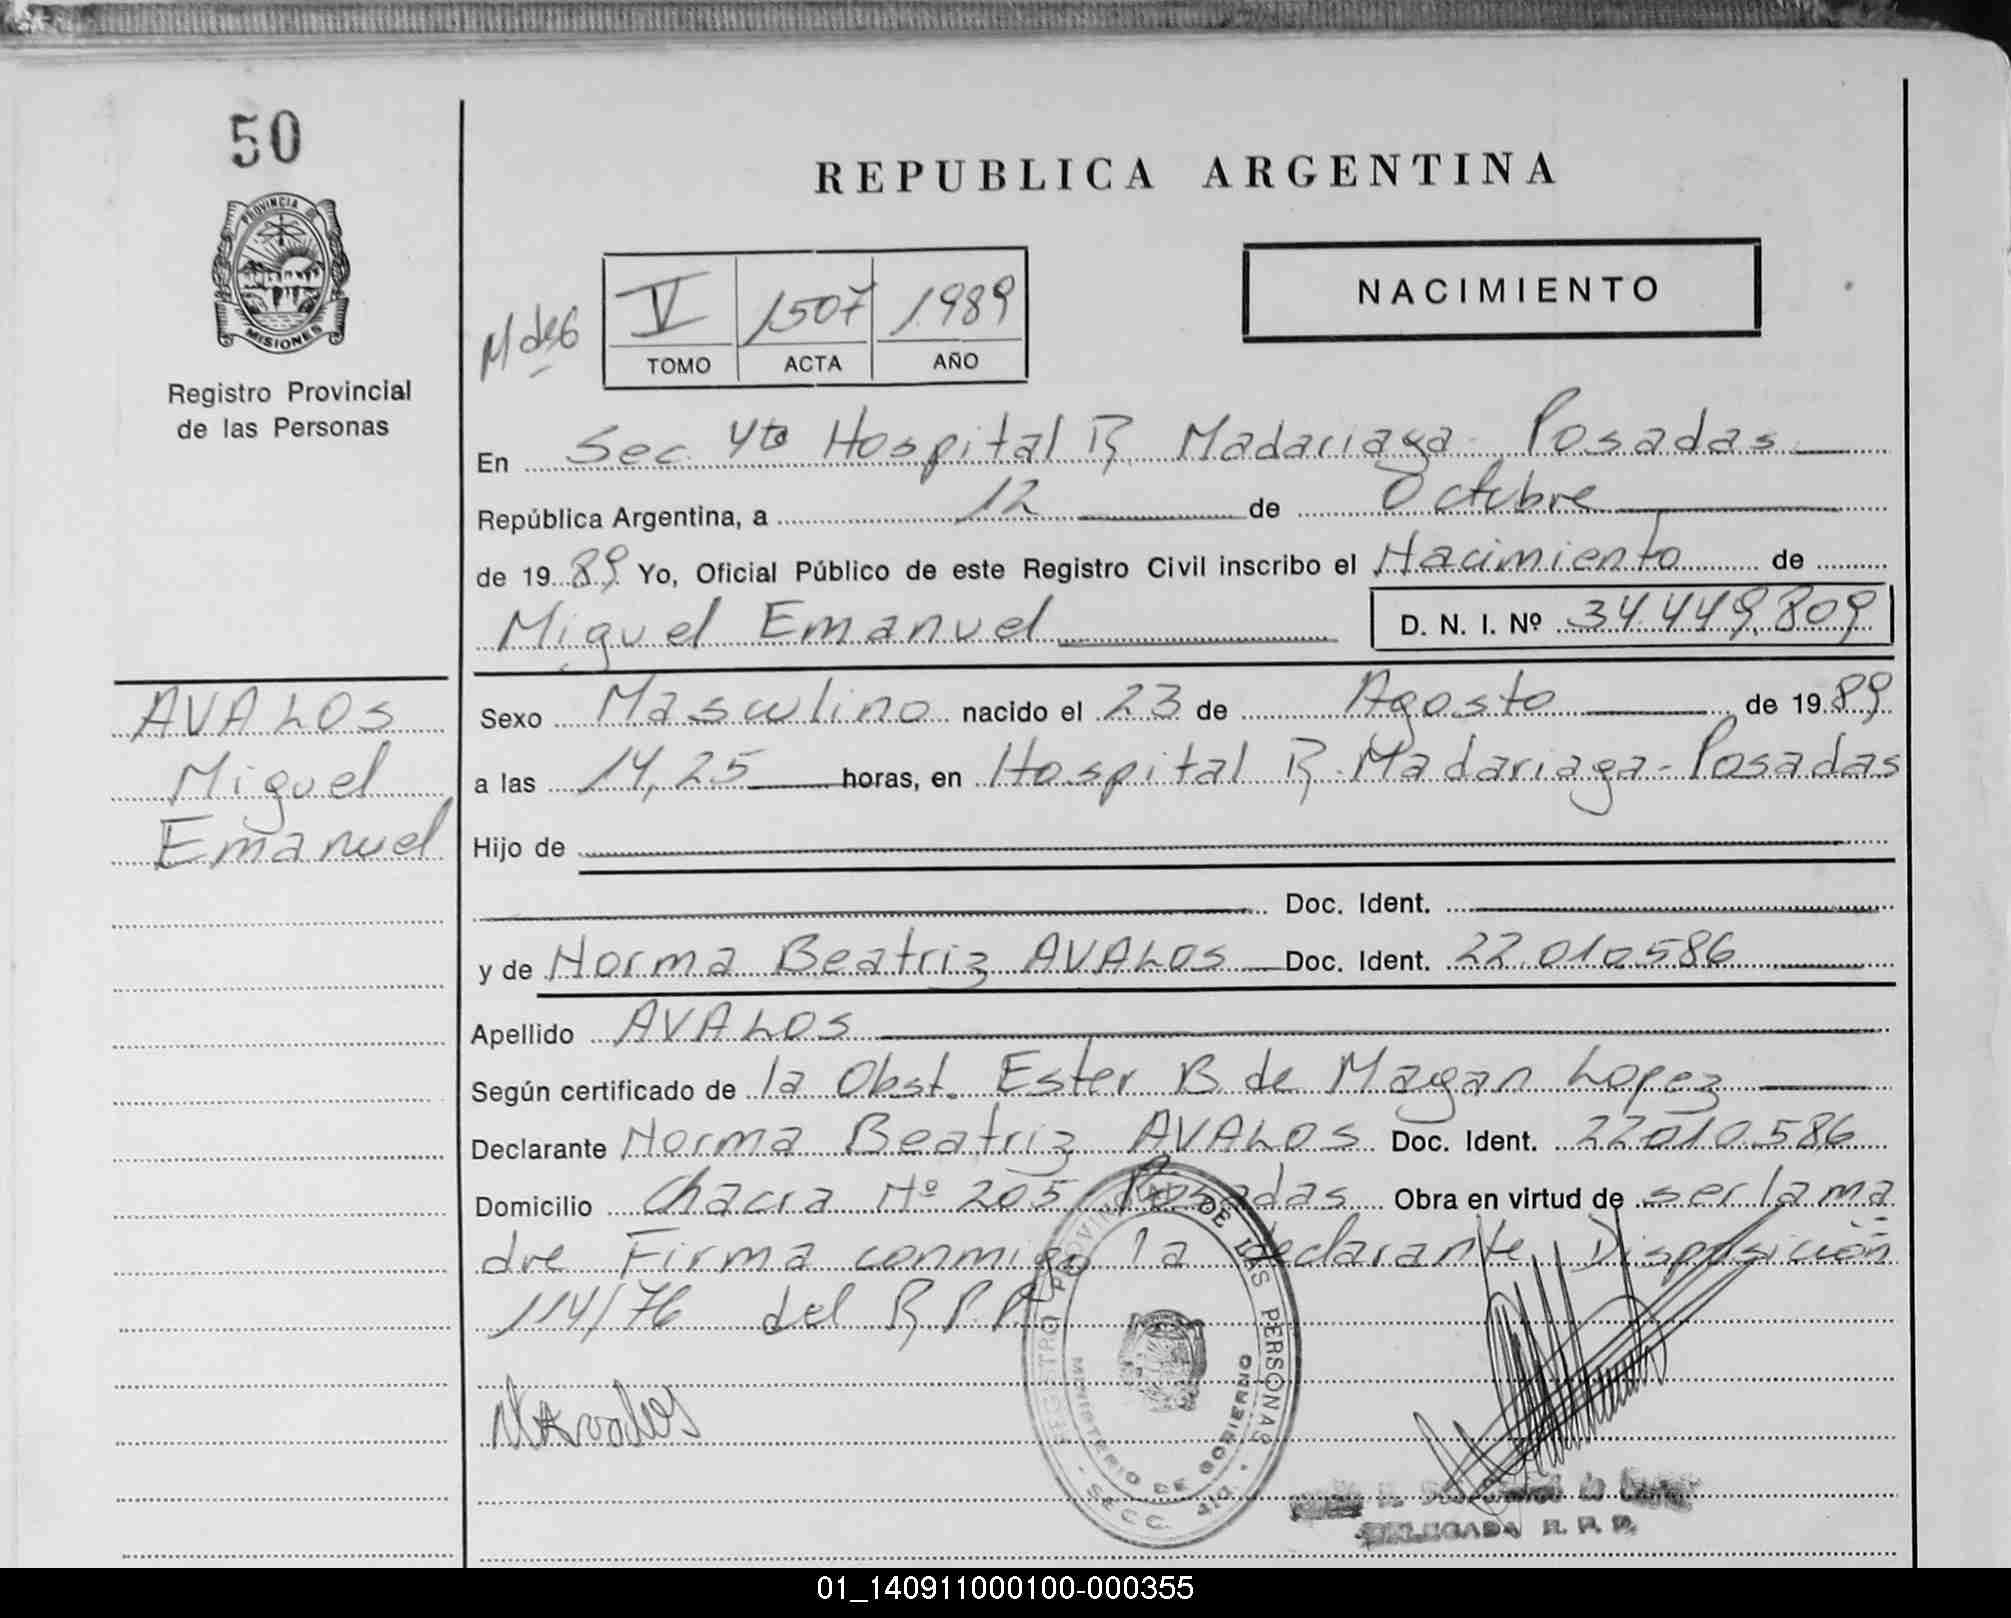 50
PROVINCIA DE
MISIONES
Registro Provincial
de las Personas
AVALOS
Miguel
Emanuel
REPUBLICA ARGENTINA
V 1507 1989
TOMO ACTA AÑO
NACIMIENTO
En Sec. 4ta Hospital R. Madariaga Posadas
República Argentina, a 12 de Octubre
de 1989 Yo, Oficial Público de este Registro Civil inscribo el Nacimiento de
Miguel Emanuel D. N. I. Nº 34.449.809
Sexo Masculino nacido el 23 de Agosto de 1989
a las 14,25 horas, en Hospital R. Madariaga - Posadas
Hijo de
Doc. Ident.
y de Norma Beatriz AVALOS Doc. Ident. 22.010.586
Apellido AVALOS
Según certificado de la Obst. Ester B. de Magan Lopez
Declarante Norma Beatriz AVALOS Doc. Ident. 22.010.586
Domicilio Chacra Nº 205 Posadas Obra en virtud de ser la ma
dre Firma conmigo la declarante Disposición
114/76 del R.P.P.
REGISTRO PROVINCIAL DE LAS PERSONAS
MINISTERIO DE GOBIERNO
SECC. 4ta.
DELEGADA R. P. P.
01_140911000100-000355